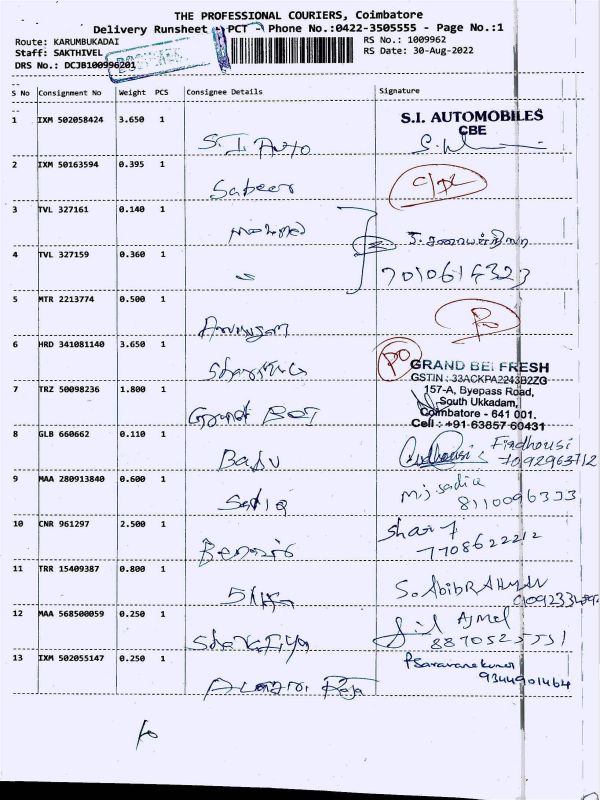 THE PROFESSIONAL COURIERS, Coimbatore
Delivery Runsheet - PCT - Phone No.:0422-3505555 - Page No.:1
Route: KARUMBUKADAI RS No.: 1009962
Staff: SAKTHIVEL RS Date: 30-Aug-2022
DRS No.: DCJB100996201
S No Consignment No Weight PCS Consignee Details Signature
1 IXM 502058424 3.650 1 S.I. Auto S.I. AUTOMOBILES
CBE
2 IXM 50163594 0.395 1 Sabeer
3 TVL 327161 0.140 1
4 TVL 327159 0.360 1 7010614323
5 MTR 2213774 0.500 1 Arumugam
6 HRD 341081140 3.650 1
GRAND BEI FRESH
GSTIN : 33ACKPA2243B2ZG
7 TRZ 50098236 1.800 1 157-A, Byepass Road,
South Ukkadam,
Coimbatore - 641 001.
Cell : +91 63857 60431
8 GLB 660662 0.110 1 Babu Firdhousi
7092963712
9 MAA 280913840 0.600 1 Sadiq M.J sadiq
8110096333
10 CNR 961297 2.500 1
7708622212
11 TRR 15409387 0.800 1 S. AbibRAHMAN
12 MAA 568500059 0.250 1 Ajmel
13 IXM 502055147 0.250 1 Raja P Saravanakumar
9344901464